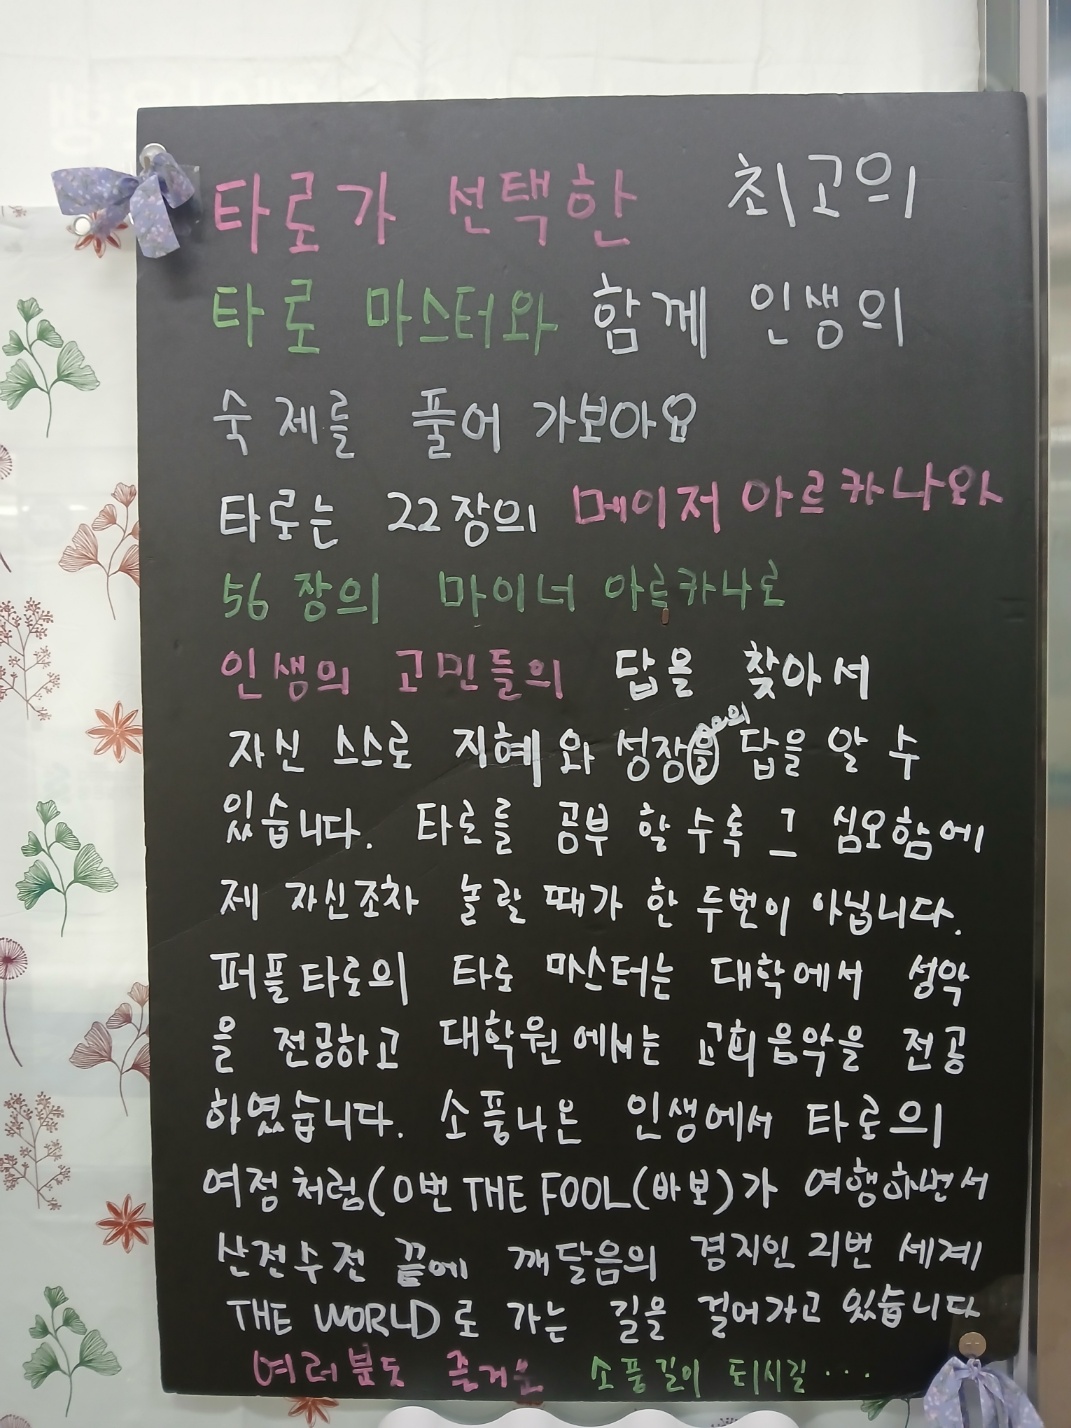 타로가 선택한 최고의
타로 마스터와 함께 인생의
숙제를 풀어 가보아요
타로는 22장의 메이저 아르카나와
56장의 마이너 아르카나로
인생의 고민들의 답을 찾아서
자신 스스로 지혜와 성장을의 답을 알 수
있습니다. 타로를 공부 할수록 그 심오함에
제 자신조차 놀랄 때가 한 두번이 아닙니다.
퍼플타로의 타로 마스터는 대학에서 성악
을 전공하고 대학원에서는 교회음악을 전공
하였습니다. 소풍나온 인생에서 타로의
여정처럼(0번 THE FOOL(바보)가 여행하면서
산전수전 끝에 깨달음의 경지인 21번 세계
THE WORLD로 가는 길을 걸어가고 있습니다
여러분도 즐거운 소풍길이 되시길...